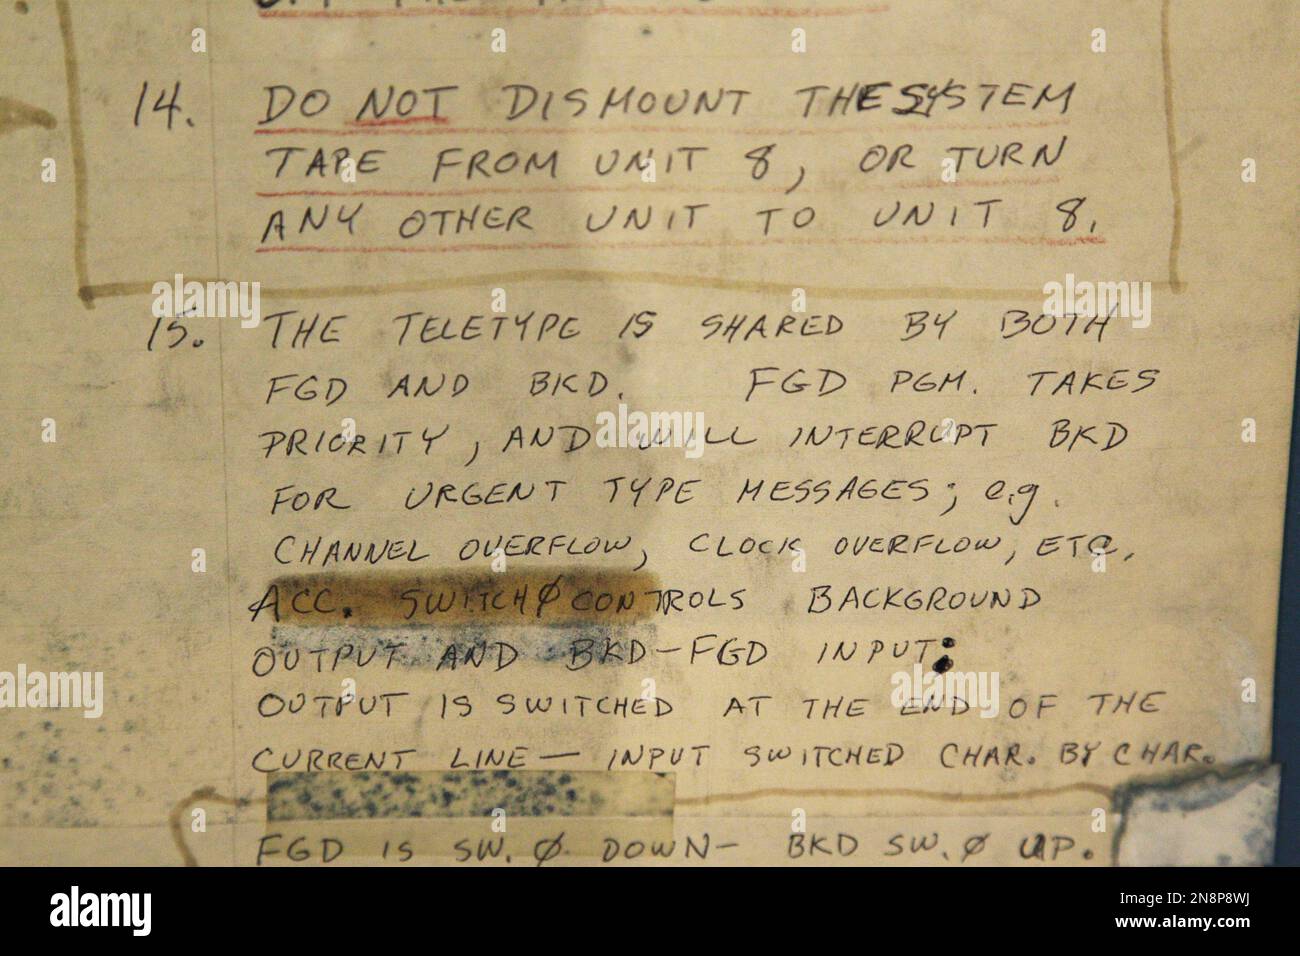 14. DO NOT DISMOUNT THE SYSTEM
TAPE FROM UNIT 8, OR TURN
ANY OTHER UNIT TO UNIT 8.
15. THE TELETYPE IS SHARED BY BOTH
FGD AND BKD. FGD PGM. TAKES
PRIORITY, AND WILL INTERRUPT BKD
FOR URGENT TYPE MESSAGES; e.g.
CHANNEL OVERFLOW, CLOCK OVERFLOW, ETC.
ACC. SWITCH Ø CONTROLS BACKGROUND
OUTPUT AND BKD-FGD INPUT;
OUTPUT IS SWITCHED AT THE END OF THE
CURRENT LINE — INPUT SWITCHED CHAR. BY CHAR.
FGD IS SW. Ø DOWN - BKD SW. Ø UP.
alamy
Image ID: 2N8P8WJ
www.alamy.com